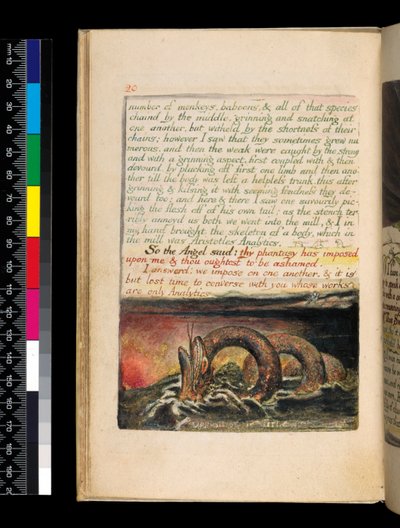 20
number of monkeys, baboons, & all of that species
chaind by the middle, grinning and snatching at
one another, but witheld by the shortness of their
chains: however I saw that they sometimes grew nu
merous, and then the weak were caught by the strong
and with a grinning aspect, first coupled with & then
devourd, by plucking off first one limb and then ano-
ther till the body was left a helpless trunk. this after
grinning & kissing it with seeming fondness they de-
vourd too; and here & there I saw one savourily pic-
king the flesh off of his own tail; as the stench ter
ribly annoyd us both we went into the mill, & I in
my hand brought the skeleton of a body, which in
the mill was Aristotles Analytics.
So the Angel said: thy phantasy has imposed
upon me & thou oughtest to be ashamed.
I answerd: we impose on one another, & it is
but lost time to converse with you whose works
are only Analytics